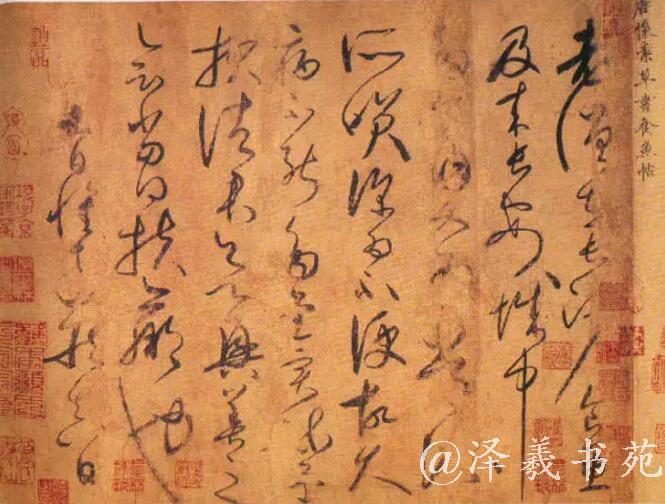 唐懷素草書食魚帖
老僧在長沙食魚
及來長安城中
多食肉又為常流
所笑深為不便故久
病不能多書實疏還
報諸君欲興善之
會當得扶羸也
九日懷素藏真白
@泽羲书苑